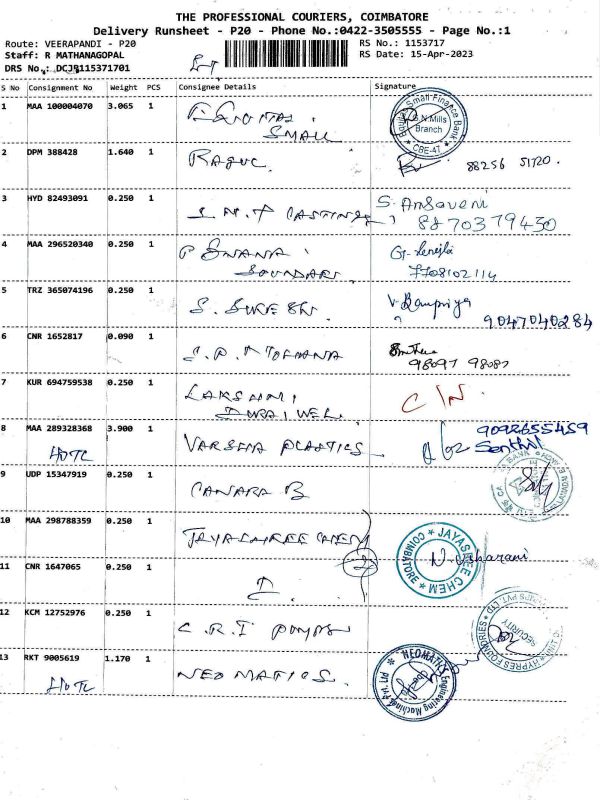 THE PROFESSIONAL COURIERS, COIMBATORE
Delivery Runsheet - P20 - Phone No.:0422-3505555 - Page No.:1
Route: VEERAPANDI - P20 RS No.: 1153717
Staff: R MATHANAGOPAL RS Date: 15-Apr-2023
DRS No.: DCJB115371701
S No Consignment No Weight PCS Consignee Details Signature
1 MAA 100004070 3.065 1
SMALL
Small Finance Bank
S.N.Mills
Branch
CBE-47
2 DPM 388428 1.640 1 88256 51720.
3 HYD 82493091 0.250 1 CASTINGS S. Ansaveni
8870379430
4 MAA 296520340 0.250 1
SOUNDARI 7708102114
5 TRZ 365074196 0.250 1 S. SURESH. V. Rampriya
9047040284
6 CNR 1652817 0.090 1
98097 98087
7 KUR 694759538 0.250 1 LAKSHMI
DURAIVEL. C/N.
8 MAA 289328368 3.900 1 VARSHA PLASTICS 9092655459
HOTC Senthil
9 UDP 15347919 0.250 1 CANARA B
BANK
10 MAA 298788359 0.250 1 JAYASHREE CHEM
JAYASREE CHEM
COIMBATORE
11 CNR 1647065 0.250 1 2
12 KCM 12752976 0.250 1 C.R.I PUMPS
SECURITY
13 RKT 9005619 1.170 1 NEOMATICS.
HOTC
Engineering Machines Pvt Ltd